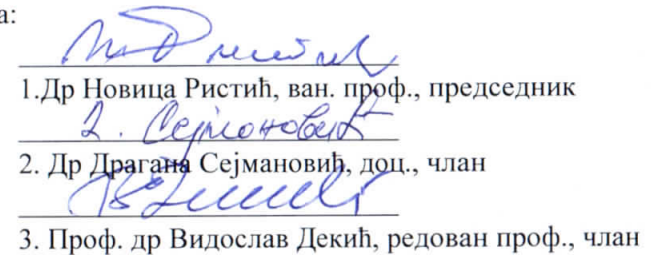 а:
1.Др Новица Ристић, ван. проф., председник
2. Др Драгана Сејмановић, доц., члан
3. Проф. др Видослав Декић, редован проф., члан